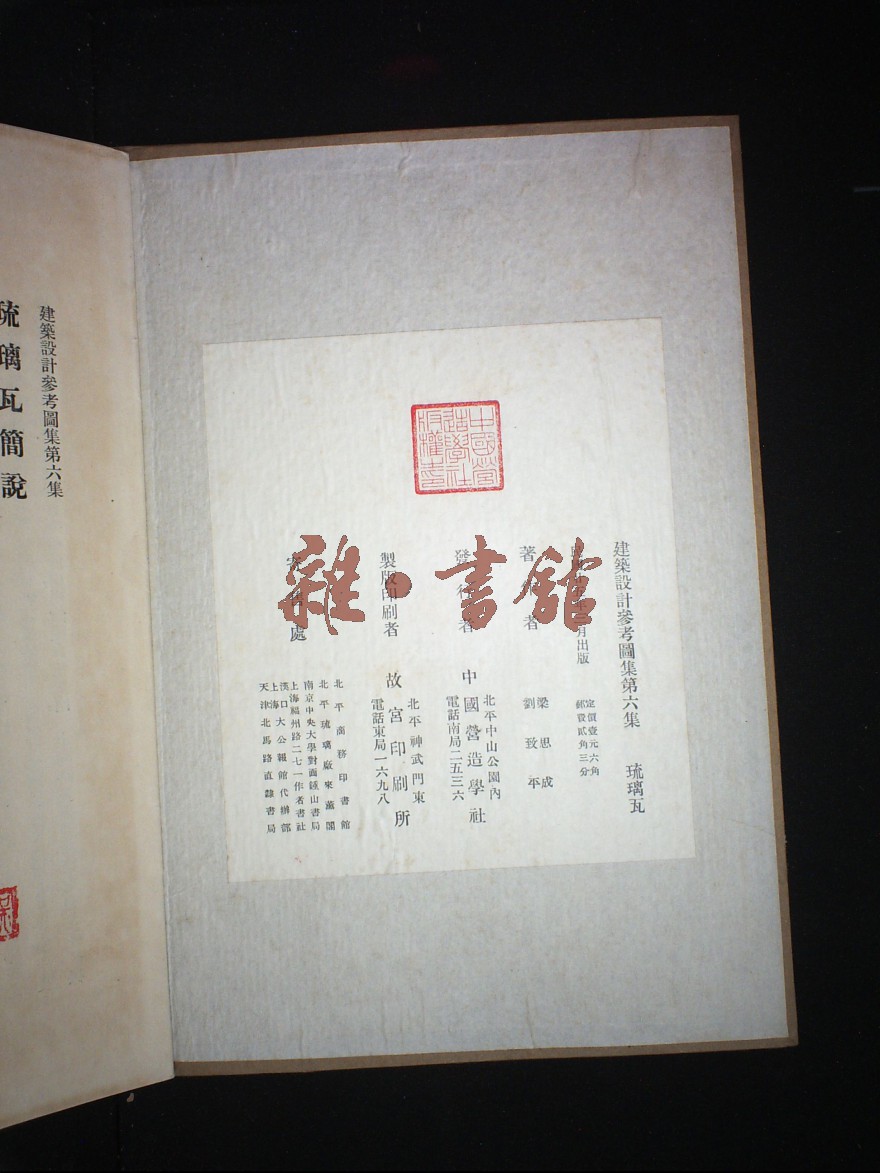 建築設計參考圖集第六集 琉璃瓦
年 月出版 定價壹元六角
郵費貳角三分
著 者 梁思成
劉致平
發行者 中國營造學社
北平中山公園內
電話南局二五三六
製版印刷者 故宮印刷所
北平神武門東
電話東局一六九八
寄售處
北平商務印書館
北平琉璃廠來薰閣
南京中央大學對面鍾山書局
上海福州路二七一作者書社
漢口上海大公報館代辦部
天津北馬路直隸書局
中國營造學社版權印
雜·書館
建築設計參考圖集第六集
琉璃瓦簡說